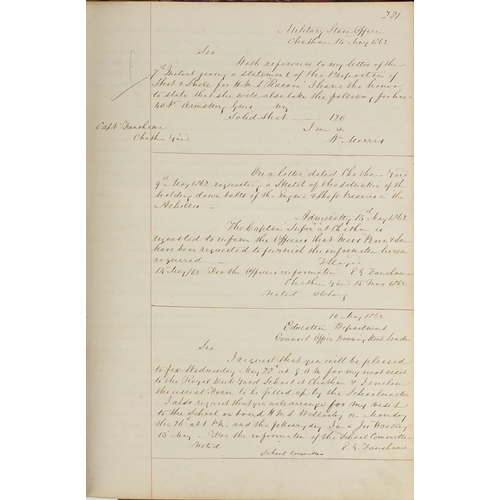 201
Military Store Office
Chatham 14 May 1862
Sir
With reference to my letter of the
7th Instant giving a statement of the Proportion of
Shot & Shell for H.M.S. "Racoon" I have the honor
to state that she will also take the following for her
40 Pr Armstrong Guns viz
Solid Shot 120
I am &c
Wm Morris
Captn Fanshawe
Chatham Yard
On a letter dated Chatham Yard
9th May 1862 requesting a Sketch of the
holding down bolts of the Engine & Shaft Bearers in the
Achilles
Admiralty 13th May 1862
The Captain Supt at Chatham is
requested to inform the Officers that Messrs Penn & Son
have been requested to furnish the information herein
required
14 May/62 For the Officers information E.G. Fanshawe
Chatham Yard 14 May 1862
Noted
10 May 1862
Education Department
Council Office Downing Street London
Sir
I request that you will be pleased
to fix Wednesday May 28th at 9 A.M. for my next visit
to the Royal Dock Yard School at Chatham & I enclose
the usual Form to be filled up by the Schoolmaster
I also request that you will arrange for my visit
to the School on board H.M.S. Wellesley on Monday
the 26th at 1 P.M. and the following day I am &c
13 May For the information of the School Committee
Noted E.G. Fanshawe
School Committee